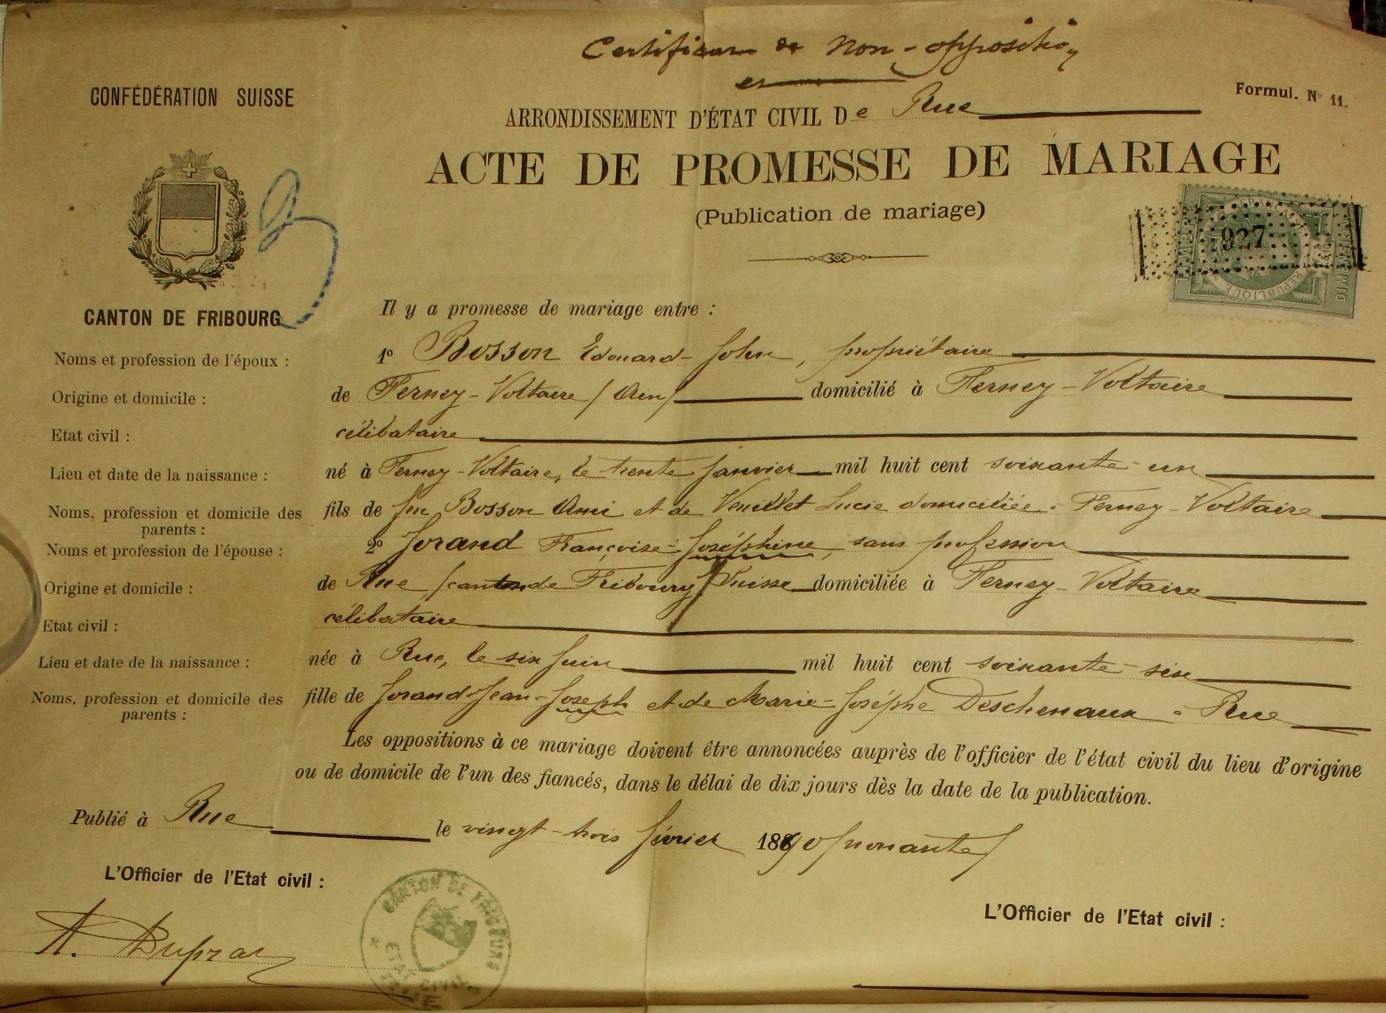 Certificat de Non-opposition
et
CONFÉDÉRATION SUISSE
Formul. No 11.
ARRONDISSEMENT D'ÉTAT CIVIL De Rue
ACTE DE PROMESSE DE MARIAGE
(Publication de mariage)
927
CANTON DE FRIBOURG
Il y a promesse de mariage entre :
Noms et profession de l'époux : 1o Bosson Edouard-John, propriétaire
Origine et domicile : de Ferney-Voltaire (Ain) domicilié à Ferney-Voltaire
Etat civil : célibataire
Lieu et date de la naissance : né à Ferney-Voltaire, le trente janvier mil huit cent soixante-un
Noms, profession et domicile des parents : fils de feu Bosson Ami et de Vuillet Lucie domiciliée à Ferney-Voltaire
Noms et profession de l'épouse : 2o Jorand Françoise-Joséphine, sans profession
Origine et domicile : de Rue (canton de Fribourg) Suisse domiciliée à Ferney-Voltaire
Etat civil : célibataire
Lieu et date de la naissance : née à Rue, le six juin mil huit cent soixante-six
Noms, profession et domicile des parents : fille de Jorand Jean-Joseph et de Marie-Josephe Deschenaux à Rue
Les oppositions à ce mariage doivent être annoncées auprès de l'officier de l'état civil du lieu d'origine
ou de domicile de l'un des fiancés, dans le délai de dix jours dès la date de la publication.
Publié à Rue le vingt-trois février 1890 (nonante)
L'Officier de l'Etat civil :
L'Officier de l'Etat civil :
CANTON DE FRIBOURG
ETAT CIVIL